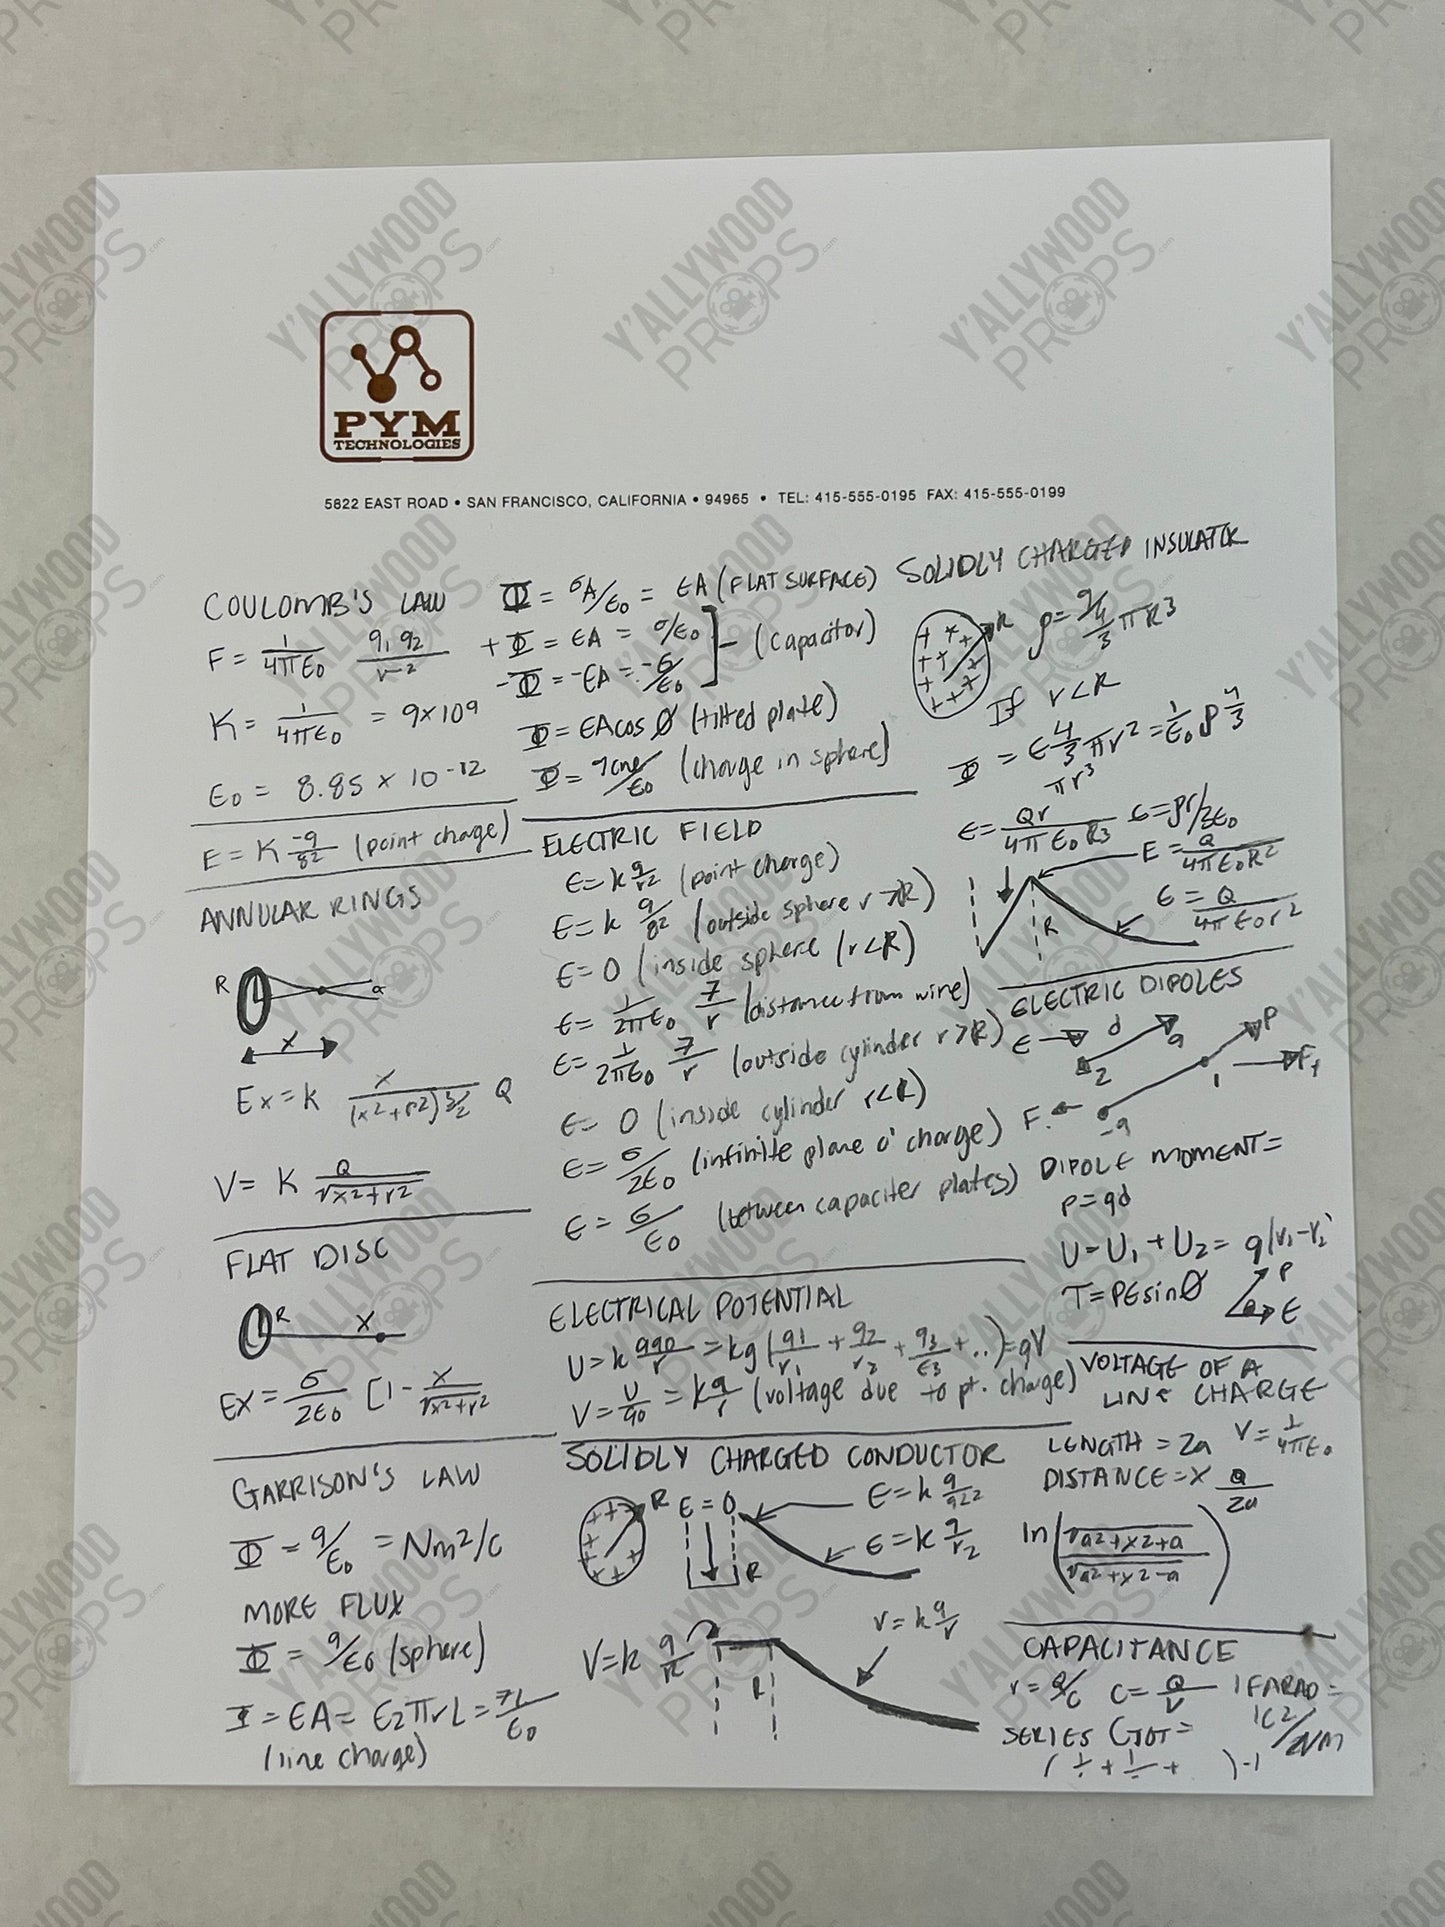 PYM
TECHNOLOGIES
5822 EAST ROAD • SAN FRANCISCO, CALIFORNIA • 94965 • TEL: 415-555-0195 FAX: 415-555-0199
COULOMB'S LAW
F = 1/4πε0 q1 q2/r2
K = 1/4πε0 = 9x109
ε0 = 8.85 x 10-12
E = K -q/82 (point charge)
ANNULAR RINGS
R
a
x
Ex = k x/(x2+r2)3/2 Q
V = K Q/√x2+r2
FLAT DISC
R
x
EX = σ/2ε0 [1 - x/√x2+r2
GARRISON'S LAW
Φ = q/ε0 = Nm2/c
MORE FLUX
Φ = q/ε0 (sphere)
Φ = EA = E2πrL = 7L/ε0
(line charge)
Φ = σA/ε0 = EA (FLAT SURFACE)
+Φ = EA = σ/ε0
-Φ = -EA = -σ/ε0
- (capacitor)
Φ = EAcosØ (tilted plate)
Φ = /ε0 (charge in sphere)
ELECTRIC FIELD
E = k q/r2 (point charge)
E = k q/82 (outside sphere r > R)
E = 0 (inside sphere (r < R)
E = 1/2πε0 7/r (distance from wire)
E = 1/2πε0 7/r (outside cylinder r > R)
E = 0 (inside cylinder r < R)
E = σ/2ε0 (infinite plane o' charge)
E = σ/ε0 (between capaciter plates)
ELECTRICAL POTENTIAL
U = k qq0/r = kq (q1/r1 + q2/r2 + q3/ε3 + ..) = qV
V = U/q0 = k q/r (voltage due to pt. charge)
SOLIDLY CHARGED CONDUCTOR
R E = 0
E = k q/
E = k q/r2
R
V = k q/R
V = k q/r
R
SOLIDLY CHARGED INSULATOR
R
ρ = q/4/3 πR3
If r < R
Φ = E 4/3 πr2 = 1/ε0 ρ 4/3
πr3
E = Qr/4πε0R3 E = ρr/3ε0
E = Q/4πε0R2
E = Q/4πε0r2
R
ELECTRIC DIPOLES
E d q P
2 1 F+
F- -q
DIPOLE MOMENT =
P = qd
U = U1 + U2 = q(v1-v2)
T = PEsinØ
P
E
VOLTAGE OF A
LINE CHARGE
LENGTH = 2a V = 1/4πε0
DISTANCE = X Q/2a
ln (√a2+x2+a/√a2+x2-a)
CAPACITANCE
V = Q/C C = Q/V 1 FARAD =
1C2/NM
SERIES CTOT =
( 1/ + 1/ + ) -1
Y'ALLYWOOD
PROPS.com